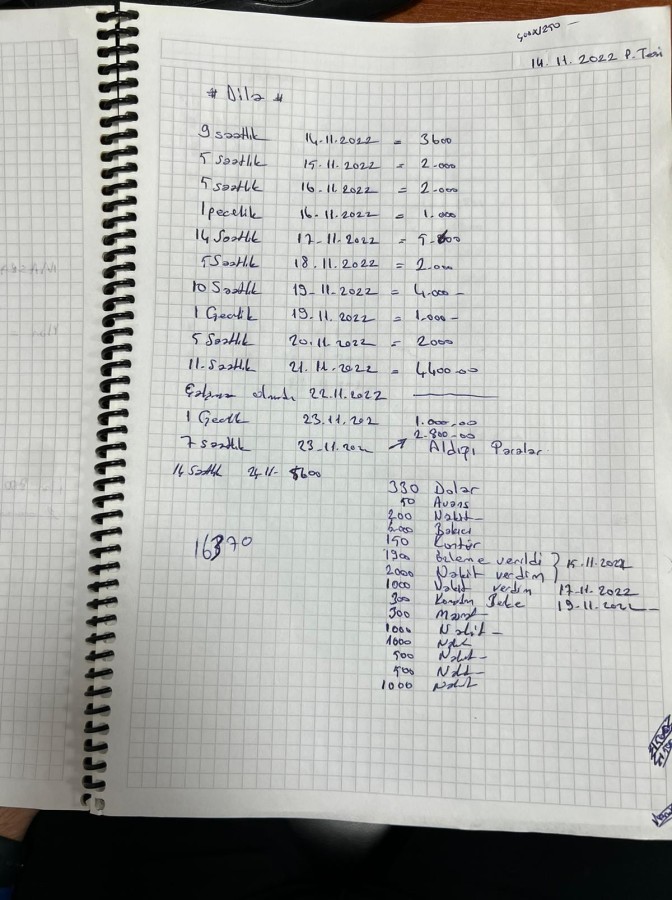 14.11.2022 P.Tesi
# Dila #
9 saatlik 14.11.2022 = 3600
5 Saatlik 15.11.2022 = 2.000
5 saatlik 16.11.2022 = 2.000
1 pecelik 16-11.2022 = 1.000
14 Saatlik 17-11.2022 = 5.600
5 Saatlik 18.11.2022 = 2.000
10 Saatlik 19-11-2022 = 4.000-
1 Gecelik 19.11.2022 = 1.000-
5 Saatlik 20.11.2022 = 2000
11.Saatlik 21.11.2022 = 4400.00
22.11.2022
1 Gecelik 23.11.202 1.000.00
2.800.00
7 saatlik 23-11.202 → Aldıpı Paralar.
14 Saatlik 24-11- 5600
330 Dolar
50 Avans
200 Nakit
Bakıcı
150 Kontür
verildi } 15.11.2022
2000 Nakit verdim
1000 Nakit verdim 17-11-2022
300 19-11-2022
300
1000 Nakit
1000 Nakit
500 Nakit
500 Nakit
1000 Nakit
16370